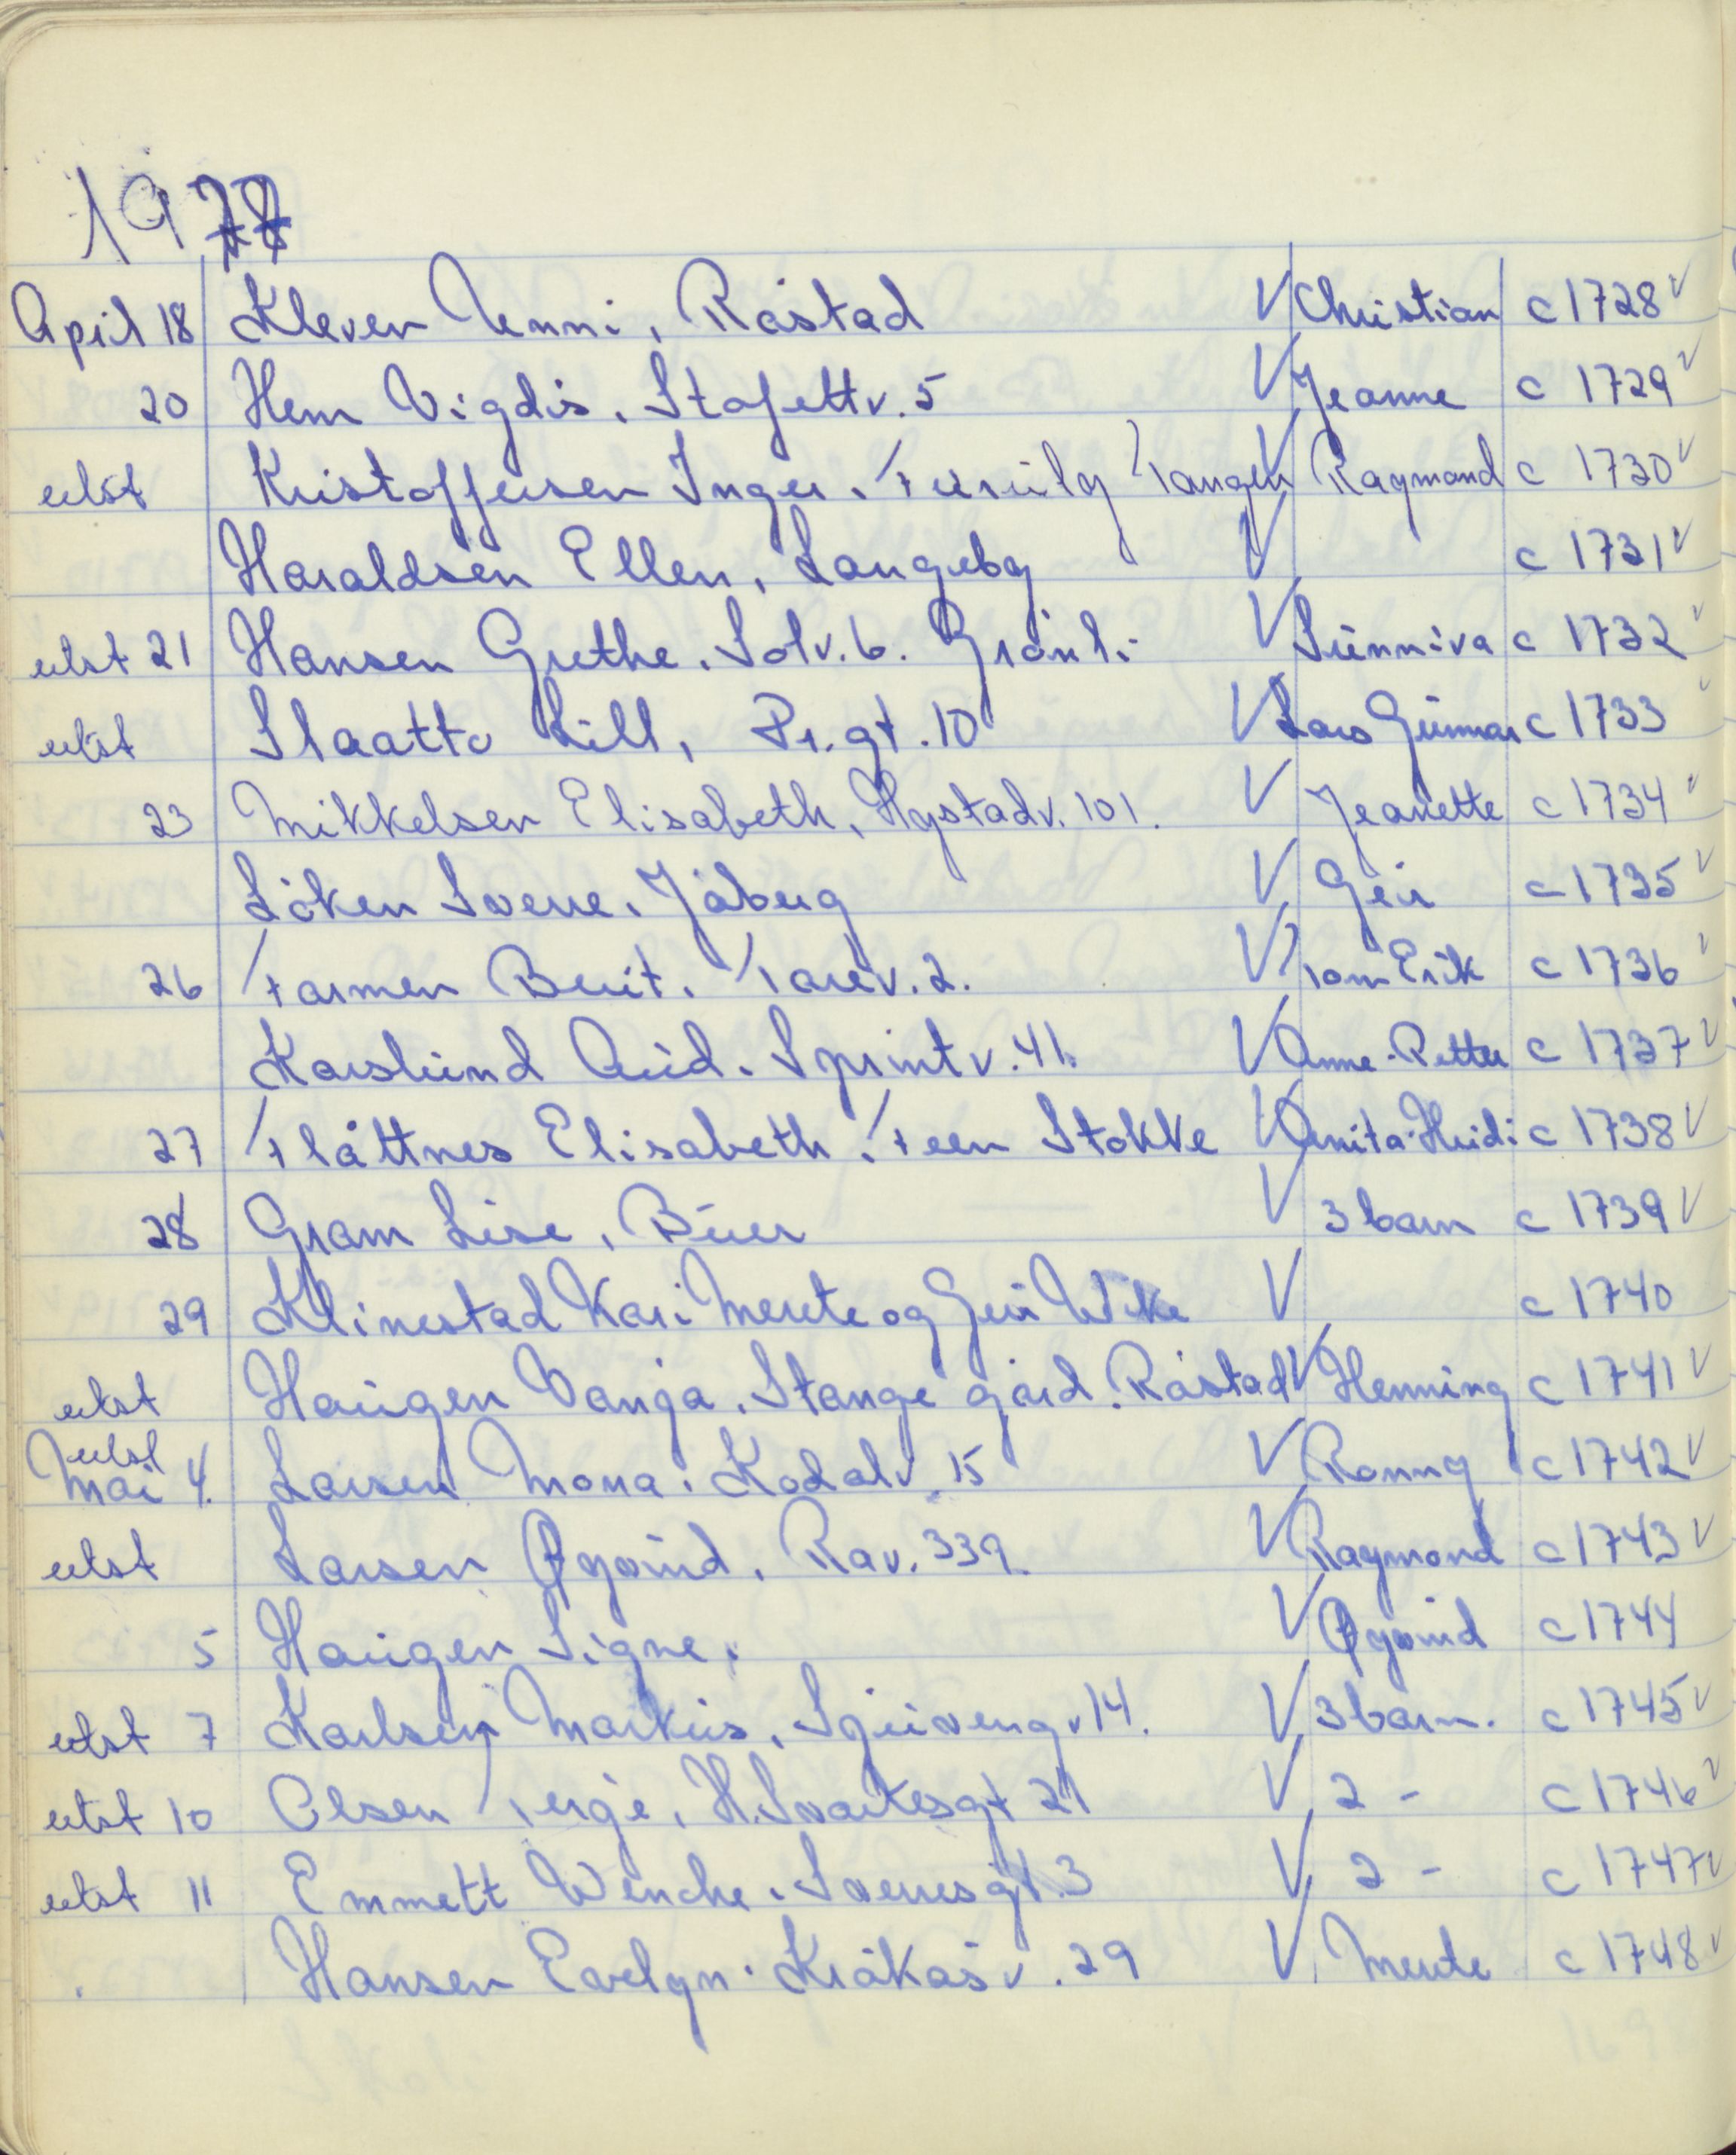 1978
April 18 Kleven Unni, Råstad V Christian c 1728 v
20 Hem Vigdis. Stafettv. 5 V Jeanne c 1729 v
utst Kristoffersen Inger. Furuly Tangen V Raymond c 1730 v
Haraldsen Ellen, Langeby V c 1731 v
utst 21 Hansen Grethe. Solv. 6. Grønli V Sunniva c 1732 v
utst Slaatto Lill, Pr. gt. 10 V Lars Gunnar c 1733
23 Mikkelsen Elisabeth, Hystadv. 101. V Jeanette c 1734 v
Löken Sverre. Jåberg V Geir c 1735 v
26 Farmen Berit. Tarev. 2. V Tom Erik c 1736 v
Karslund Aud. Sprintv. 41. V Anne-Petter c 1737 v
27 Flåttnes Elisabeth. Feen Stokke V Anita-Heidi c 1738 v
28 Gram Lise, Buer V 3 barn c 1739 v
29 Klinestad Kari Merete og Geir Wike V c 1740
utst Haugen Vanja. Stange gård. Råstad V Henning c 1741 v
utst
Mai 4. Larsen Mona. Kodalv. 15 V Ronny c 1742 v
utst Larsen Øyvind. Rav. 339. V Raymond c 1743 v
5 Haugen Signe. V Øyvind c 1744
utst 7 Karlsen Markus. Sjuvengv 14. V 3 barn. c 1745 v
utst 10 Olsen Terje, H. Svartesgt 21 V 2 - c 1746 v
utst 11 Emmett Wenche. Sverresgt. 3 V 2 - c 1747 v
Hansen Evelyn. Kråkåsv. 29 V Merete c 1748 v